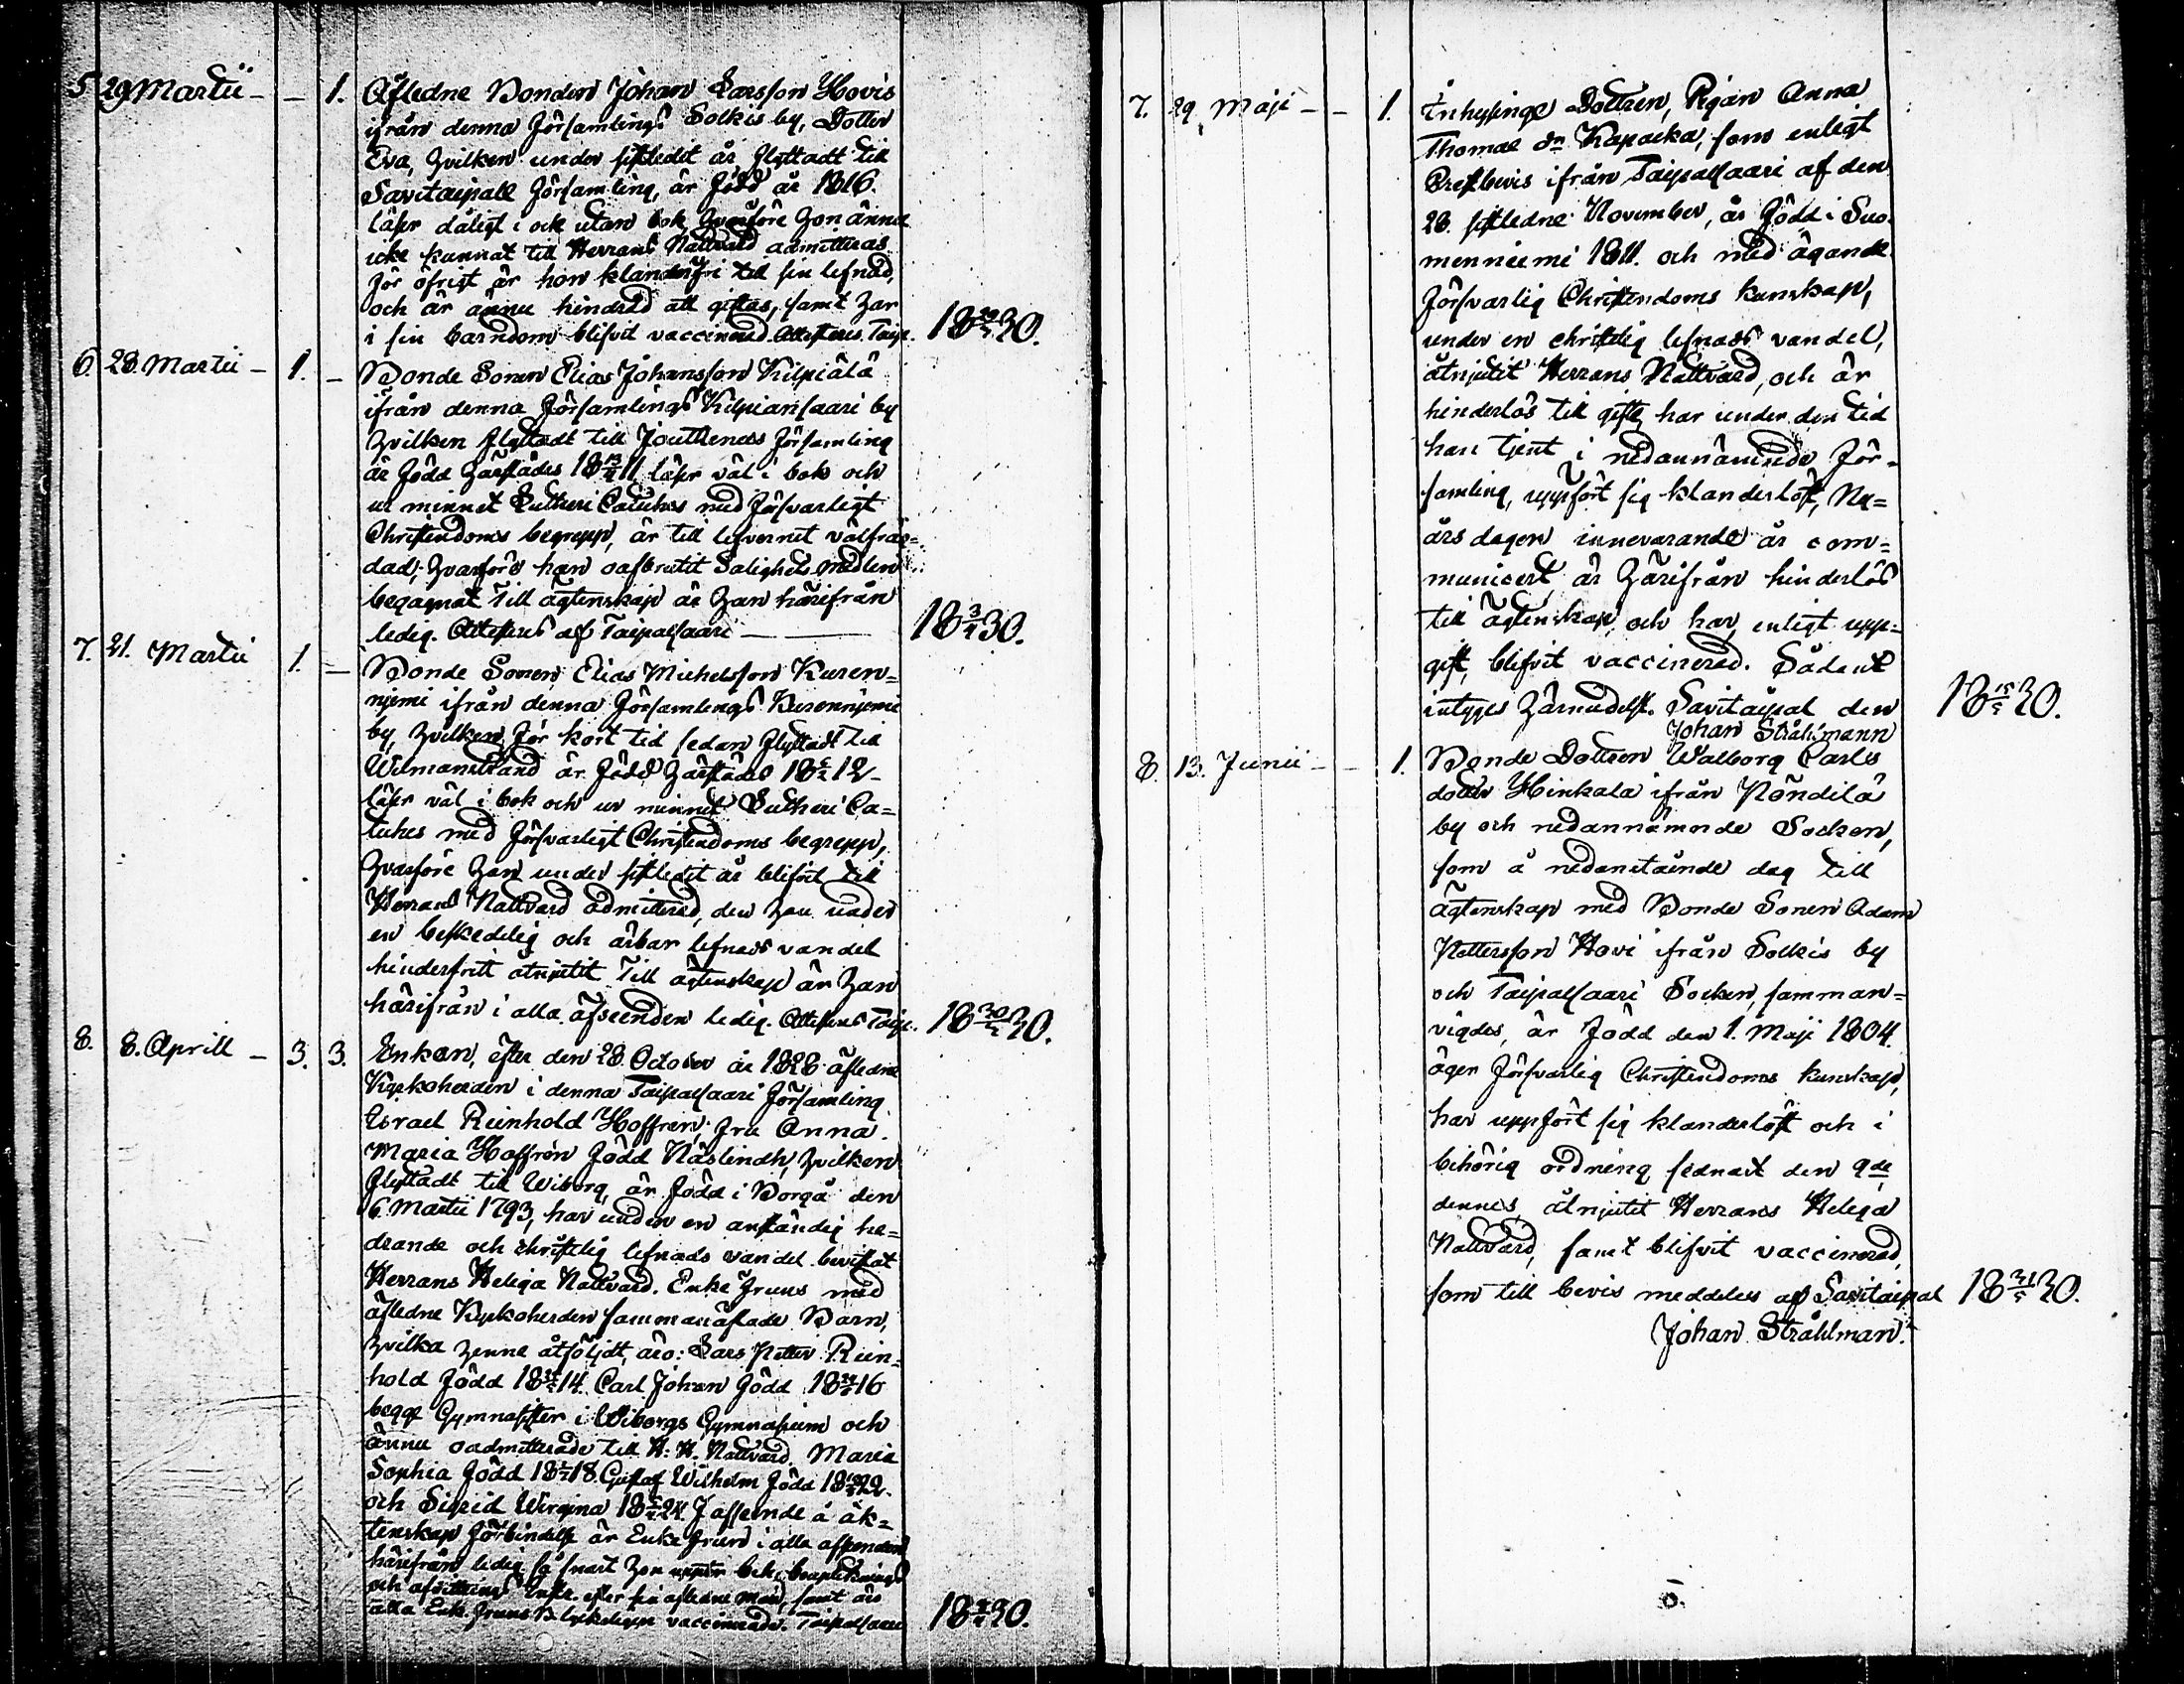 5 29 Martii - - 1. Afledne Bonden Johan Larsson Hovis
ifrån denna Församlings Solkis by, Dotter
Eva, hvilken under sistledit år flyttadt till
Savitaipale Församling, är född år 1816.
läser dåligt i och utan bok, hvarföre hon ännu
icke kunnat till Herrans Nattvard admitteras
för öfrigt är hon klanderfri till sin lefnad,
och är ännu hindrad att giftas, samt har
i sin barndom blifvit vaccinerad. Attesteras Taip. 18 30.
6 28. Martii - 1. - Bonde Sonen Elias Johansson Kilpiälä
ifrån denna Församlings Kilpiansaari by
hvilken flyttadt till Jouttenos Församling
är född härstädes 18 13 11, läser väl i bok och
ur minnet Lutheri Cateches med försvarligt
Christendoms begrepp, är till lefvernet välfräg=
dad, hvarföre han oafbrutit Salighets medlen
begagnat Till ägtenskap är han härifrån
ledig. Attesteras af Taipalsaari 18 3/4 30.
7. 21. Martii 1. - Bonde Sonen Elias Michelsson Kuren=
njemi ifrån denna Församlings Kurennjemi
by, hvilken för kort tid sedan flyttadt till
Wilmanstrand är född härstädes 18 12
läser väl i bok och ur minnet Lutheri Ca=
teches med försvarligt Christendoms begrepp,
hvarföre han under sistledit år blifvit till
Herrans Nattvard admitterad, den han under
en beskedelig och ärbar lefnads vandel
hinderfritt åtnjutit Till ägtenskap är han
härifrån i alla afseenden ledig. Attesteras Taip. 18 30.
8. 8. Aprill - 3. 3. Enkan, efter den 28. October år 1828 afledne
Kyrkoherden i denna Taipalsaari Församling
Israel Reinhold Hoffren, Fru Anna
Maria Hoffrén född Näslindh, hvilken
flyttadt till Wiborg, är född i Borgå den
6. Martii 1793, har under en anständig he=
drande och christelig lefnads vandel bevistat
Herrans Heliga Nattvard. Enke Fruns med
afledne Kyrkoherden sammanaflade Barn,
hvilka henne åtföljdt, äro: Lars Petter Rein=
hold född 18 14. Carl Johan född 18 16
begge Gymnasister i Wiborgs Gymnasium och
ännu oadmitterade till H. H. Nattvard. Maria
Sophia född 18 18. Gustaf Wilhelm född 18 22.
och Sigrid Wirgina 18 24. I afseende å äk=
tenskap förbindelse är Enke Frun i alla afseenden
härifrån ledig så snart hon
och efter sin afledne man, samt äro
alla Enk. Fruns B. vaccinerade. Taipalsaari 18 30.
7. 29 Maji - - 1. Inhysinge Dottren, Pigan Anna
Thomae dr Kapacka, som enligt
Prestbevis ifrån Taipalsaari af den
28. sistledne November, är född i Suo=
menniemi 1811. och med ägande
försvarlig Christendoms kunskap,
under en christelig lefnads vandel,
åtnjutit Herrans Nattvard, och är
hinderlös till gifte, har under den tid
hon tjent i nedannämnde För=
samling, uppfört sig klanderlöst, Ny=
års dagen innevarande år com=
municert, är härifrån hinderlös
till Ägtenskap och har, enligt upp=
gift, blifvit vaccinerad. Sådant
intyges härmedelst. Savitaipal den 18 15/5 30.
Johan Stråhlmann
8. 13. Junii - - 1. Bonde Dottren Walborg Carls
dotter Hinkala ifrån Pöndilä
by och nedannämnde Socken,
som å nedanstående dag till
Ägtenskap med Bonde Sonen Adam
Pettersson Hovi ifrån Solkis by
och Taipalsaari Socken, samman=
vigdes, är född den 1. Maji 1804.
äger försvarlig Christendoms kunskap,
har uppfört sig klanderlöst och i
behörig ordning, sednast den 9de
dennes, åtnjutit Herrans Heliga
Nattvard, samt blifvit vaccinerad,
som till bevis meddeles af Savitaipal 18 31/5 30.
Johan Stråhlman.